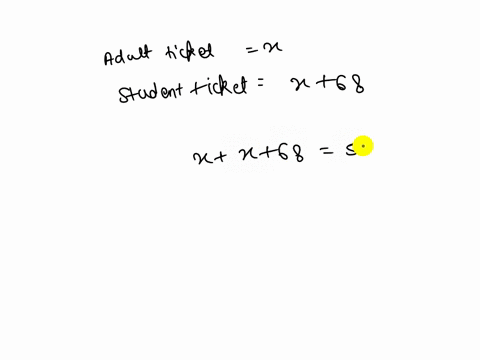 Adult ticket = x
Student ticket = x + 68
x + x + 68 =